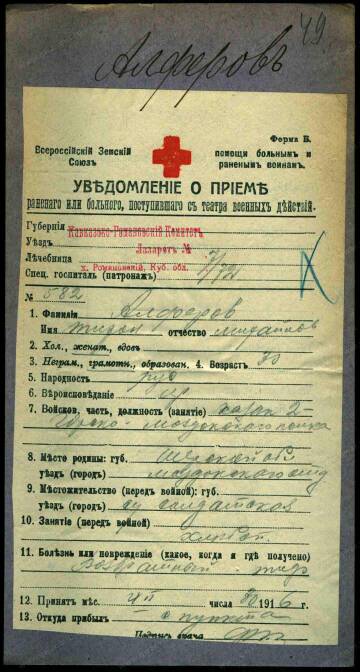 49
Алферовъ
Форма Б.
Всероссійскій Земскій Союзъ
помощи больнымъ и раненымъ воинамъ.
УВѢДОМЛЕНІЕ О ПРІЕМѢ
раненаго или больного, поступившаго съ театра военныхъ дѣйствій.
Губернія
Кавказско-Романовскій Комитетъ
Уѣздъ
Лазаретъ №
Лѣчебница
х. Романовскій, Куб. обл.
Спец. госпиталь (патронаж)
№ 582
1. Фамилія Алферов
Имя отчество
2. Хол., женат., вдовъ
3. Неграм., грамотн., образован. 4. Возрастъ
5. Народность рус
6. Вѣроисповѣданіе
7. Войсков. часть, должность (занятіе) казак 2-
Горско-Моздокского полка
8. Мѣсто родины: губ.
уѣздъ (городъ) Моздокского отд
9. Мѣстожительство (передъ войной): губ.
уѣздъ (городъ) солдатская
10. Занятіе (передъ войной)
хлебоп.
11. Болѣзнь или поврежденіе (какое, когда и гдѣ получено)
Возвратный тиф
12. Принятъ мѣс. числа 1916 г.
13. Откуда прибылъ с пункта
Подпись врача